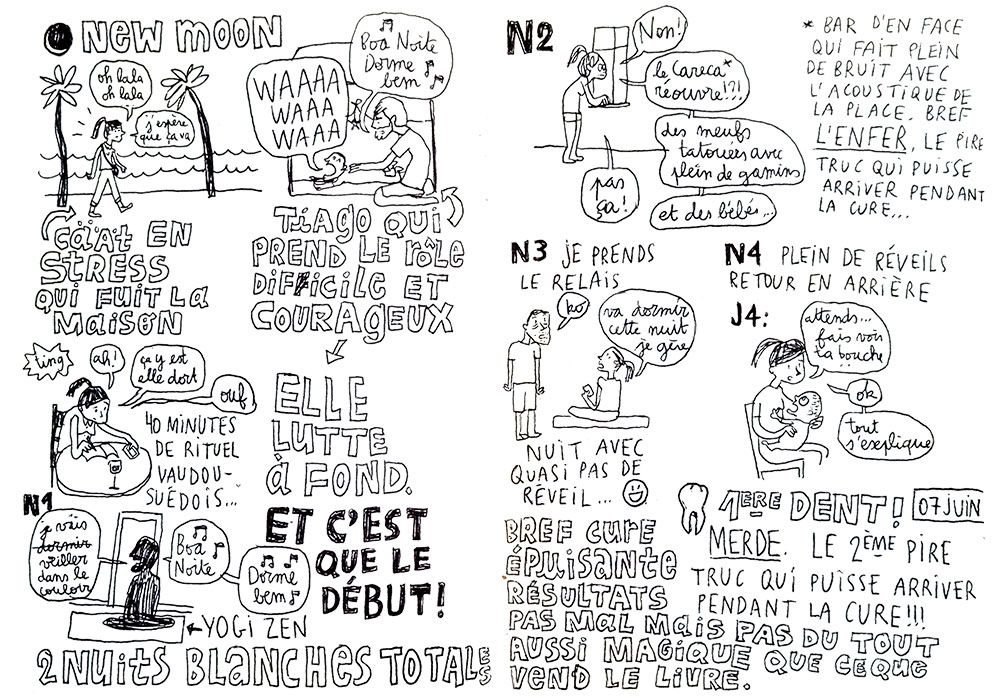 NEW MOON
oh lala
oh lala
j'espère
que ça va
WAAAA
WAAA
WAAA
Boa Noite
Dorme
bem
CÄÄT EN
STRESS
QUI FUIT LA
MAISON
TIAGO QUI
PREND LE RÔLE
DIFFICILE ET
COURAGEUX
ting
ah!
ça y est
elle dort
ouf
40 MINUTES
DE RITUEL
VAUDOU-
SUÉDOIS...
ELLE
LUTTE
À FOND.
ET C'EST
QUE LE
DÉBUT!
N1
je vais
dormir
veiller
dans le
couloir
Boa
Noite
Dorme
bem
YOGI ZEN
2 NUITS BLANCHES TOTALES
N2
Non!
le Careca*
réouvre!?!
des meufs
tatouées avec
plein de gamins
et des bébés...
pas
ça!
* BAR D'EN FACE
QUI FAIT PLEIN
DE BRUIT AVEC
L'ACOUSTIQUE DE
LA PLACE. BREF
L'ENFER, LE PIRE
TRUC QUI PUISSE
ARRIVER PENDANT
LA CURE...
N3 JE PRENDS
LE RELAIS
ko
va dormir
cette nuit
je gère
NUIT AVEC
QUASI PAS DE
RÉVEIL...
N4 PLEIN DE RÉVEILS
RETOUR EN ARRIÈRE
J4:
attends...
fais voir
ta bouche
ok
tout
s'explique
1ERE DENT! 07 JUIN
MERDE. LE 2ÈME PIRE
TRUC QUI PUISSE ARRIVER
PENDANT LA CURE!!!
BREF CURE
ÉPUISANTE
RÉSULTATS
PAS MAL MAIS PAS DU TOUT
AUSSI MAGIQUE QUE CE QUE
VEND LE LIVRE.